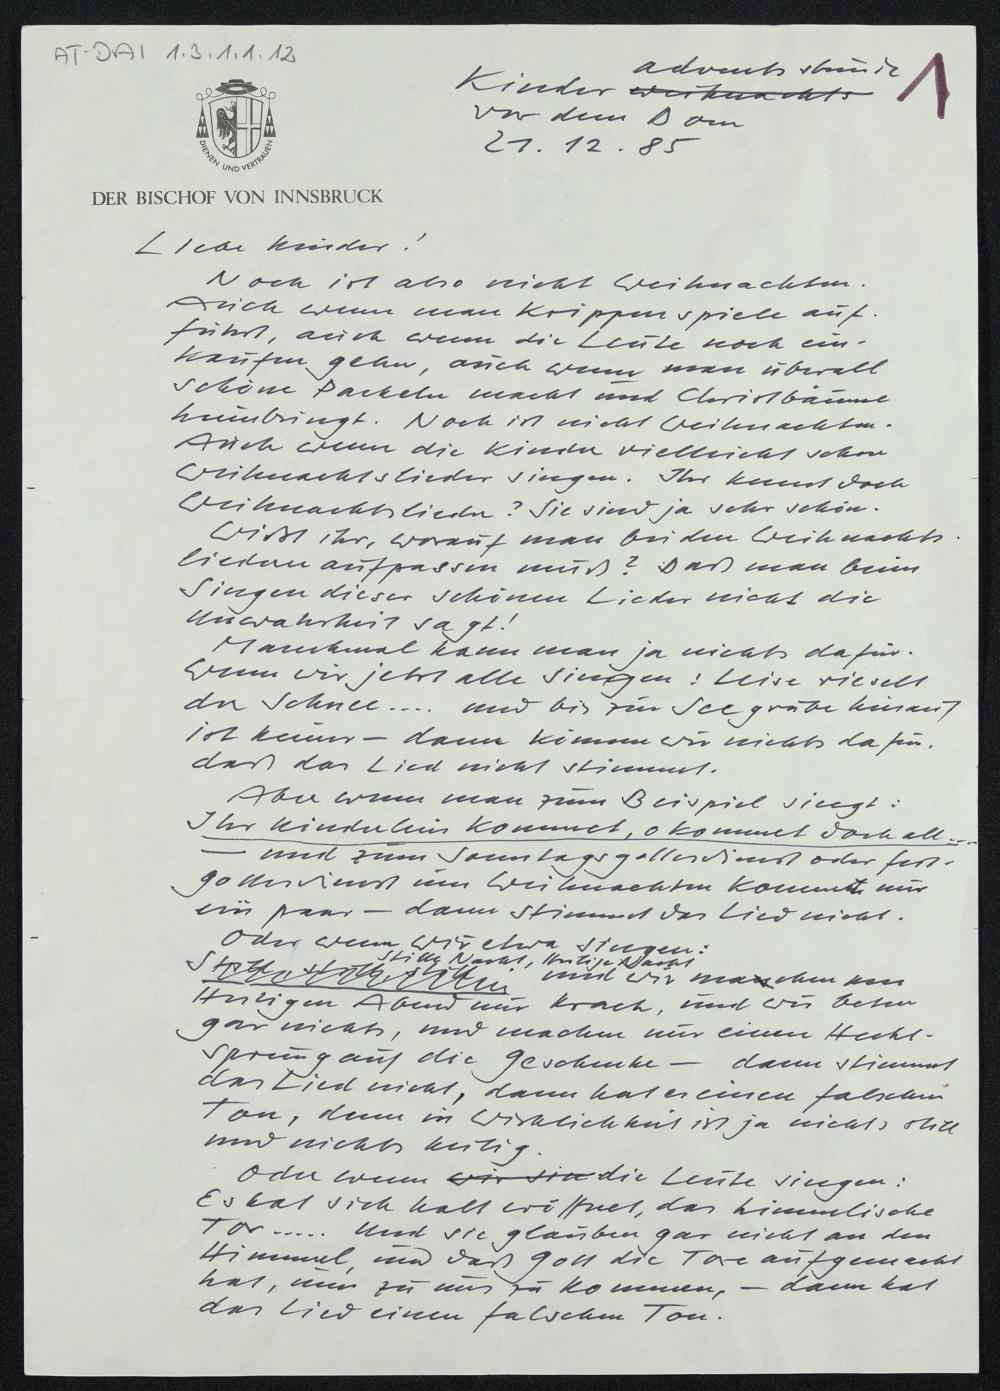 AT-DAI 1.3.1.1.12
1
adventsstunde
Kinder weihnachts
vor dem Dom
21.12.85
DIENEN UND VERTRAUEN
DER BISCHOF VON INNSBRUCK
Liebe Kinder!
Noch ist also nicht Weihnachten.
Auch wenn man Krippenspiele auf-
führt, auch wenn die Leute noch ein-
kaufen gehn, auch wenn man überall
schöne Packeln macht und Christbäume
heimbringt. Noch ist nicht Weihnachten.
Auch wenn die Kinder vielleicht schon
Weihnachtslieder singen. Ihr kennt doch
Weihnachtslieder? Sie sind ja sehr schön.
Wißt ihr, worauf man bei den Weihnachts-
liedern aufpassen muß? Daß man beim
Singen dieser schönen Lieder nicht die
Unwahrheit sagt!
Manchmal kann man ja nichts dafür.
Wenn wir jetzt alle singen: Leise rieselt
der Schnee.... und bis zur Seegrube hinauf
ist keiner – dann können wir nichts dafür,
daß das Lied nicht stimmt.
Aber wenn man zum Beispiel singt:
Ihr Kinderlein kommet, o kommet doch all...
– und zum Sonntagsgottesdienst oder Fest-
gottesdienst um Weihnachten kommt nur
ein paar – dann stimmt das Lied nicht.
Oder wenn wir etwa singen:
Stille Nacht, Heilige Nacht
und wir machen am
Heiligen Abend nur Krach, und wir beten
gar nichts, und machen nur einen Hecht-
sprung auf die Geschenke – dann stimmt
das Lied nicht, dann hat es einen falschen
Ton, denn in Wirklichkeit ist ja nichts still
und nichts heilig.
Oder wenn wir sin die Leute singen:
Es hat sich halt eröffnet, das himmlische
Tor..... Und sie glauben gar nicht an den
Himmel, und daß Gott die Tore aufgemacht
hat, um zu uns zu kommen, – dann hat
das Lied einen falschen Ton.